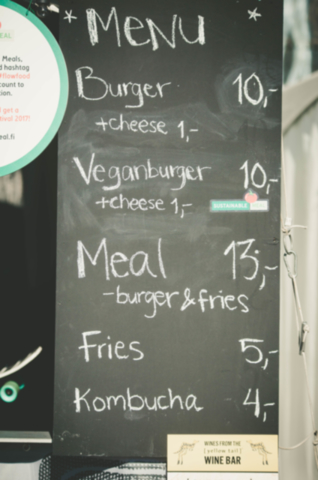 * MENU *
Burger 10,-
+cheese 1,-
Veganburger 10,-
+cheese 1,-
SUSTAINABLE
Meal 13,-
-burger & fries
Fries 5,-
Kombucha 4,-
WINES FROM THE
[yellow tail]
WINE BAR
Meals,
hashtag
count to
get a
eal.fi